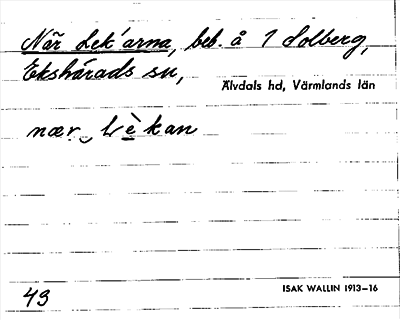 När Lek'arna, beb. å 1 Solberg,
Ekshärads sn,
Älvdals hd, Värmlands län
næṛ ‿ Lèkan
43
ISAK WALLIN 1913–16